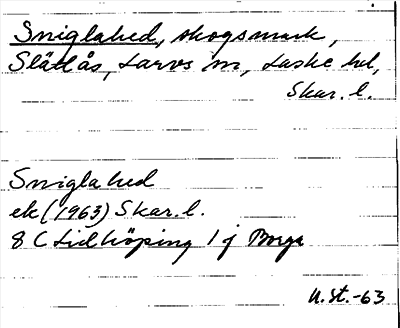 Sniglahed, skogsmark,
Slätås, Larvs sn, Laske hd,
Skar. l.
Sniglahed
ek (1963) Skar. l.
8 C Lidköping 1 j Borga
U. St. -63